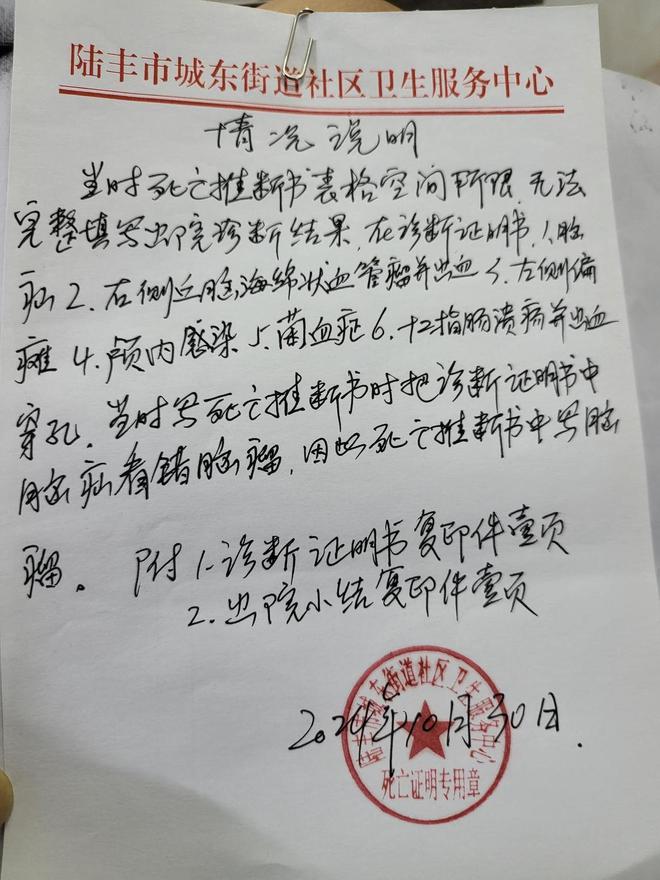 陆丰市城东街道社区卫生服务中心
情况说明
当时死亡推断书表格空间所限,无法
完整填写出院诊断结果,在诊断证明书,1.脑
疝 2.右侧丘脑海绵状血管瘤并出血 3.左侧偏
瘫 4.颅内感染 5.菌血症 6.十二指肠溃疡并出血
穿孔。当时写死亡推断书时把诊断证明书中
脑疝看错脑瘤,因此死亡推断书中写脑
瘤。 附 1.诊断证明书复印件壹页
2.出院小结复印件壹页
陆丰市城东街道社区卫生服务中心
2024年10月30日.
死亡证明专用章